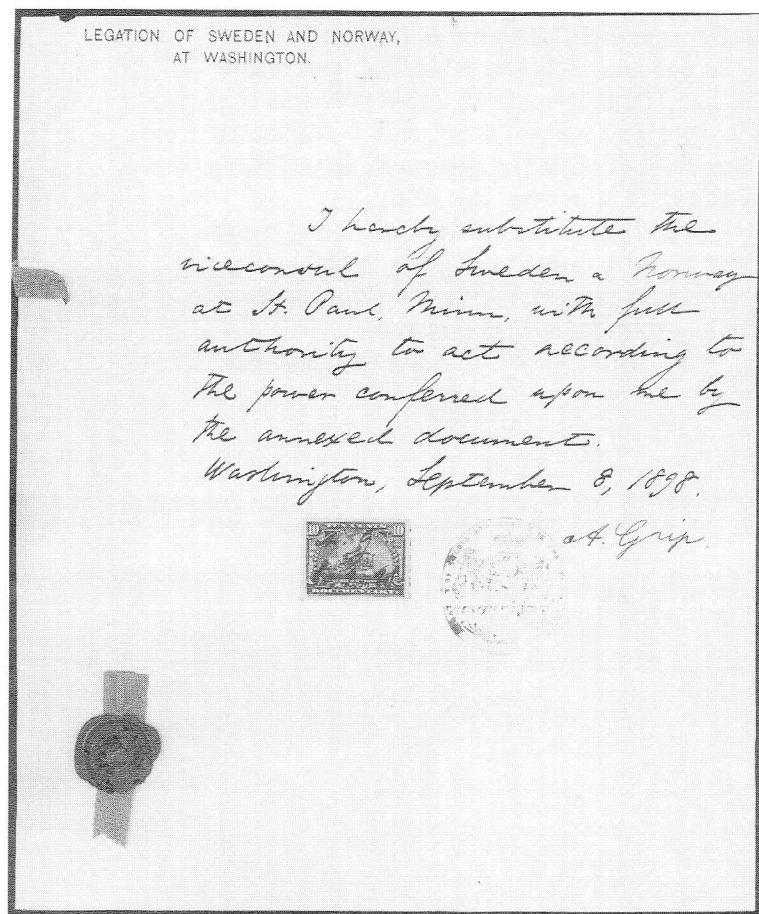 LEGATION OF SWEDEN AND NORWAY,
AT WASHINGTON.
I hereby substitute the
viceconsul of Sweden a Norway
at St. Paul, Minn, with full
authority to act according to
the power conferred upon me by
the annexed document.
Washington, September 8, 1898.
A. Grip.
10 10
DOCUMENTARY